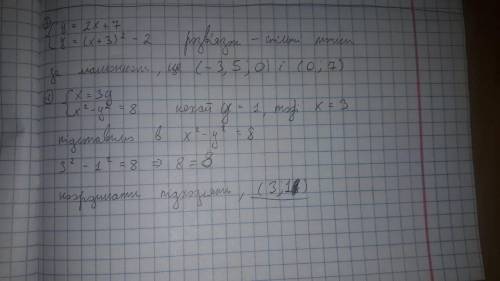 y = 2x + 7
y = (x+3)² - 2 розв'язок - спільні точки
на малюнку, це (-3,5, 0) і (0, 7)
{ x = 3y
x² - y² = 8 нехай y = 1, тоді x = 3
підставимо в x² - y² = 8
3² - 1² = 8 ⇒ 8 = 8
координати підходять, (3, 1)